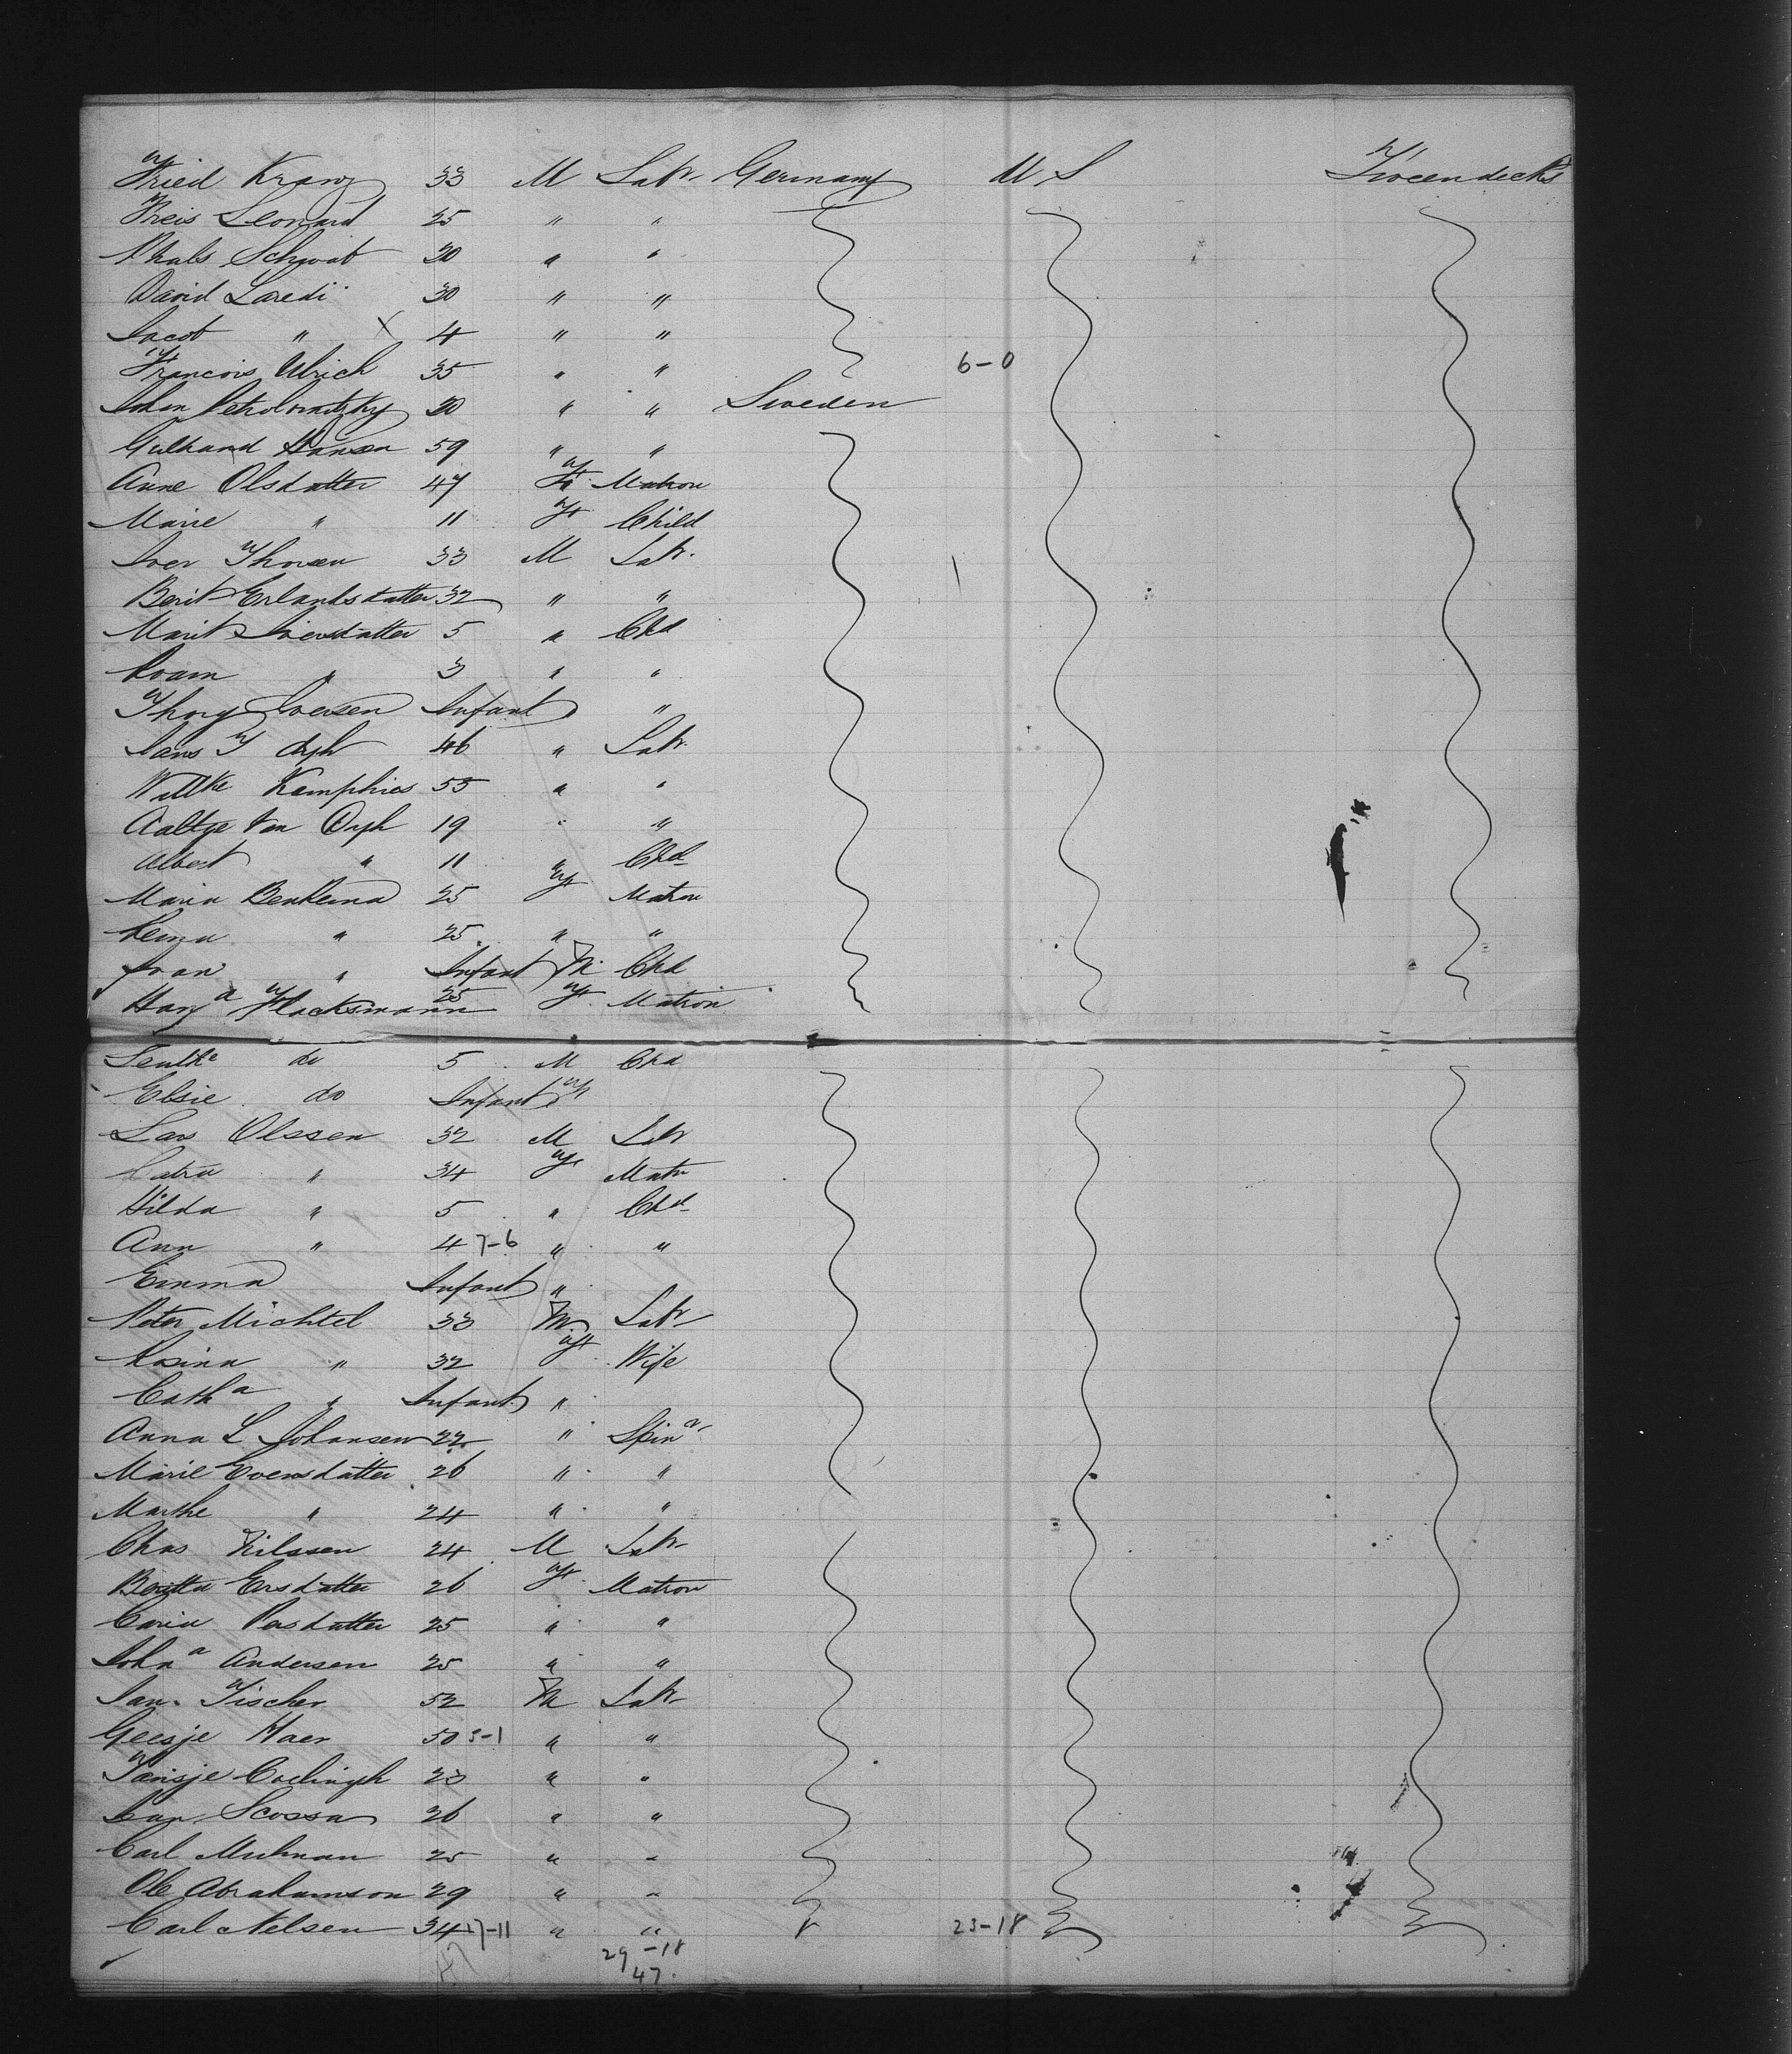 Fried Kranz 33 M Labr Germany U S Tweendecks
Preis Leonard 25 " "
Schwab 20 " "
David Laredi 30 " "
Jacob " X 4 " "
Francois Ulrich 35 " " 6-0
Johan 20 " " Sweden
Hansen 59 " "
Anne Olsdatter 47 F Matron
Marie " 11 F Child
Iver Thorsen 33 M Labr
Berit Erlandsdatter 32 " "
Marit Iversdatter 5 " Chd
" 3 " "
Thory Iversen Infant "
46 " Labr
Kamphies 55 " "
Aaltje Van Dyk 19 " "
Albert " 11 " Chd
Maria Benkema 25 F Matron
" 25 " "
" Infant M Chd
Flacksmann 25 F Matron
do 5 M Chd
Elsie do Infant F
Lars Olssen 32 M Labr
" 34 F Matn
Hilda " 5 " Chd
Ann " 4 7-6 " "
Emma Infant "
Peter Michtel 33 M Labr
Rosina " 32 F Wife
Cath a " Infant "
Anna L Johansen 22 " Spin r
Marie Evensdatter 26 " "
Marthe " 24 " "
Chas Nilssen 24 M Labr
Britta Ersdatter 26 F Matron
Carin Persdatter 25 " "
Joha a Andersen 25 " "
Jan Fischer 52 M Labr
Geesje Haer 50 5-1 " "
Tansje 23 " "
Scossa 26 " "
Carl 25 " "
Ole Abrahamson 29 " "
Carl Nelsen 34 17-11 " " 23-18
29-18
47